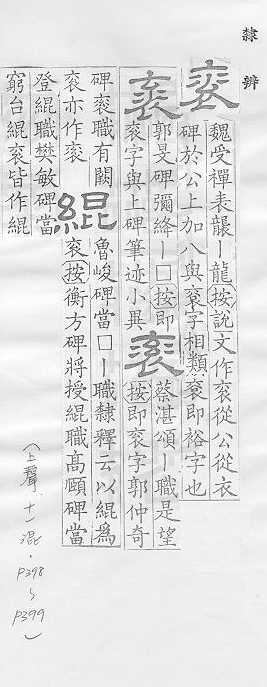 隸辨
袞 魏受禪表龑丨龍按說文作袞從公從衣
碑於公上加八與衮字相類衮即裕字也
袞 郭旻碑彌絳丨□按即
袞字與上碑筆迹小異
袞 蔡湛頌丨職是望
按即袞字郭仲奇
碑袞職有闕
袞亦作衮
緄 魯峻碑當□丨職隸釋云以緄為
袞按衡方碑將授緄職高頤碑當
登緄職樊敏碑當
窮台緄袞皆作緄
(上聲十一混·P398~P399)